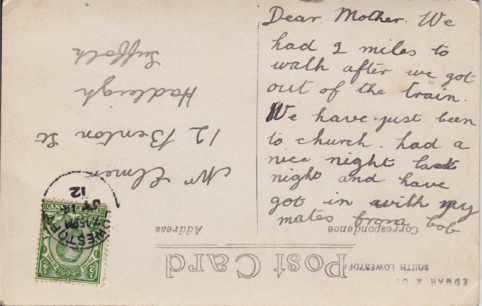 Dear Mother. We
had 2 miles to
walk after we got
out of the train.
We have just been
to church. had a
nice night last
night and have
got in with my
mates from bob
Post Card
Correspondence
Address
12 Benton St
Hadleigh
Suffolk
SOUTH LOWESTOF
12